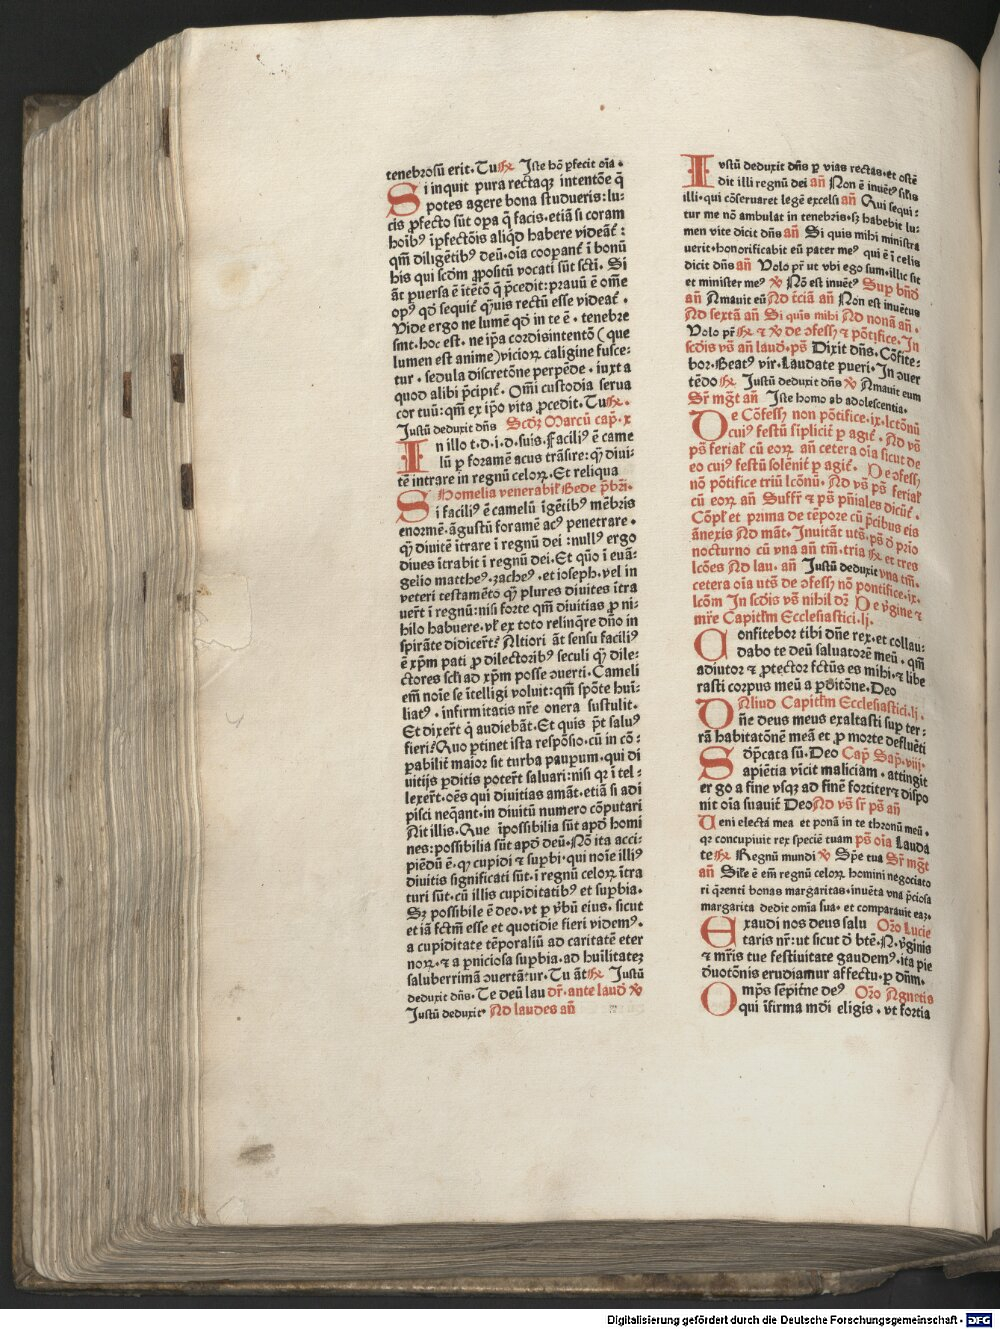 tenebrosū erit. Tu℟ Iste hō ꝑfecit oīa.
Si inquit pura rectaqꝫ intentōe q̄
potes agere bona studueris: lu-
cis ꝓfecto sūt opa q̄ facis. etiā si coram
hoībꝰ īꝑfectōis aliqd habere videāt̄ :
qm̄ diligētibꝰ deū. oīa coopant̄ ī bonū
his qui scd̄m ꝓpositū vocati sūt sc̄ti. Si
āt ꝑuersa ē ītētō q̄ p̄cedit: prauū ē om̄e
opꝰ qd̄ sequit̄ q̄uis rectū esse videat̄.
Vide ergo ne lumē qd̄ in te ē. tenebre
sint. hoc est. ne ip̄a cordis intentō (que
lumen est anime) vicioꝝ caligine fusce-
tur. sedula discretōne perpēde. iuxta
quod alibi p̄cipit̄. Om̄i custodia serua
cor tuū: qm̄ ex ip̄o vita ꝓcedit. Tu℟.
Justū deduxit dn̄s Scd̄ꝫ Marcū cap̄. x
In illo t. d. i. d. suis. Faciliꝰ ē came
lū ꝑ foramē acus trāsire: q̄ȝ diui-
tē intrare in regnū celoꝝ. Et reliqua
Homelia venerabil̄ Bede p̄br̄i.
Si faciliꝰ ē camelū īgētibꝰ mēbris
enormē. āgustū foramē acꝰ penetrare.
q̄ȝ diuitē ītrare ī regnū dei: nullꝰ ergo
diues ītrabit ī regnū dei. Et quō ī euā-
gelio mattheꝰ. zacheꝰ. et ioseph. vel in
veteri testamēto q̄ȝ plures diuites ītra
uer̄t ī regnū: nisi forte qm̄ diuitias ꝑ ni-
hilo habuere. vl̄ ex toto relinq̄re dn̄o in
spirāte didicer̄t? Altiori āt sensu faciliꝰ
ē xp̄m pati ꝓ dilectoribꝰ seculi q̄ȝ dile-
ctores scl̄i ad xp̄m posse ↄuerti. Cameli
em̄ noīe se ītelligi voluit: qm̄ spōte huī-
liatꝰ. infirmitatis nr̄e onera sustulit.
Et dixer̄t q̄ audiebāt. Et quis p̄t saluꝰ
fieri? Quo ꝑtinet ista respōsio. cū in cō-
ꝑabilit̄ maior sit turba paupum. qui di
uitijs ꝑditis poter̄t saluari: nisi qꝛ ītel-
lexer̄t. oēs qui diuitias amāt. etiā si adi
pisci neq̄ant. in diuitū numero cōputari
Ait illis. Que īpossibilia sūt apd̄ homi
nes: possibilia sūt apd̄ deū. Nō ita acci-
piēdū ē. qꝫ cupidi ⁊ suꝑbi. qui noīe illiꝰ
diuitis significati sūt. ī regnū celoꝝ ītra
turi sūt. cū illis cupiditatibꝰ et suꝑbia.
Sꝫ possibile ē deo. vt ꝑ v̄bū eius. sicut
et iā fctm̄ esse et quotidie fieri videmꝰ.
a cupiditate tēporaliū ad caritatē eter
noꝝ. ⁊ a ꝑniciosa suꝑbia. ad huilitateꝫ
saluberrimā ↄuertātur. Tu āt℟ Justū
deduxit dn̄s. Te deū lau dr̄. ante laud̄ ℣
Justū deduxit. Ad laudes an̄
Iustū deduxit dn̄s ꝑ vias rectas. et ostē
dit illi regnū dei an̄ Non ē inuētꝰ sil̄is
illi. qui cōseruaret legē excelsi an̄ Qui sequi-
tur me nō ambulat in tenebris. sꝫ habebit lu-
men vite dicit dn̄s an̄ Si quis mihi ministra
uerit. honorificabit eū pater meꝰ qui ē ī celis
dicit dn̄s an̄ Volo pr̄ ut vbi ego sum. illic sit
et minister meꝰ ℣ Nō est inuētꝰ Suꝑ bn̄d
an̄ Amauit eū Ad tc̄iā an̄ Non est inuētus
Ad sextā an̄ Si quis mihi Ad nonā an̄.
Volo pr̄ ℟ ⁊ ℣ de ↄfess̄ ⁊ pōtifice. In
scd̄is vs̄ an̄ laud̄. ps̄ Dixit dn̄s. Cōfite-
bor. Beatꝰ vir. Laudate pueri. In ↄuer
tēdo ℟ Justū deduxit dn̄s ℣ Amauit eum
Sr̄ mḡt an̄ Iste homo ab adolescentia.
De Cōfess̄ non pōtifice. ix. lctōnū
cuiꝰ festū siplicit̄ ꝑ agit̄. Ad vs̄
ps̄ ferial̄ cū eoꝝ an̄ cetera oīa sicut de
eo cuiꝰ festū solēnit̄ ꝑ agit̄. De ↄfess̄
nō pōtifice triū lcōnū. Ad vs̄ ps̄ ferial̄
cū eoꝝ an̄ Suffr̄ ⁊ ps̄ pn̄iales dicūt̄.
Cōpl̄ et prima de tēpore cū p̄cibus eis
ānexis Ad māt. Inuitāt uts̄. ps̄ d̄ prīo
nocturno cū vna an̄ tm̄. tria ℟ et tres
lcōes Ad lau. an̄ Justū deduxit vna tm̄.
cetera oīa uts̄ de ↄfess̄ nō pontifice. ix.
lcōm In scd̄is vs̄ nihil dr̄ De v̄gine ⁊
mr̄e Capitl̄m Ecclesiastici. lj.
Confitebor tibi dn̄e rex. et collau-
dabo te deū saluatorē meū. qm̄
adiutor ⁊ ꝓtector fctūs es mihi. ⁊ libe
rasti corpus meū a ꝑditōne. Deo
Aliud Capitl̄m Ecclesiastici. lj.
Dn̄e deus meus exaltasti suꝑ ter-
rā habitatōnē meā et ꝓ morte defluēti
dp̄cata sū. Deo Cap̄ Sap̄. viij.
Sapiētia vīcit maliciam. attingit
ergo a fine vsqꝫ ad finē fortiter⁊ dispo
nit oīa suauit̄ Deo Ad vs̄ sr̄ ps̄ an̄
Veni electa mea et ponā in te thronū meū.
qꝛ concupiuit rex speciē tuam ps̄ oīa Lauda
te ℟ Regnū mundi ℣ Sp̄e tua Sr̄ mḡt
an̄ Sil̄e ē em̄ regnū celoꝝ homini negociato
ri q̄renti bonas margaritas. inuēta vna p̄ciosa
margarita dedit omīa sua. et comparauit eaꝫ.
Exaudi nos deus salu Or̄o Lucie
taris nr̄: ut sicut d̄ btē. N. v̄ginis
⁊ mr̄is tue festiuitate gaudemꝰ. ita pie
d̄uotōnis erudiamur affectu. ꝑ dn̄m.
Omp̄s sēpit̄ne deꝰ Or̄o Agnetis
qui īfirma mūdi eligis. vt fortia
Digitalisierung gefördert durch die Deutsche Forschungsgemeinschaft - DFG